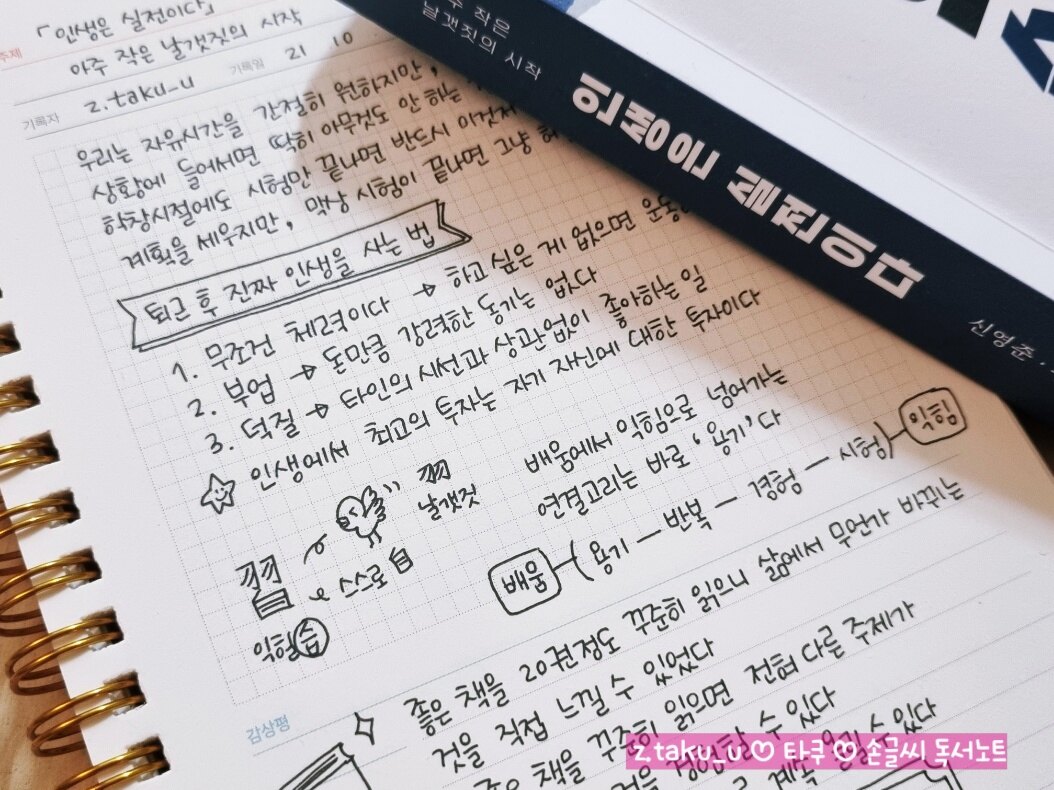 주제 「인생은 실전이다」
아주 작은 날갯짓의 시작
기록자 z.taku_u 기록일 21 10
우리는 자유시간을 간절히 원하지만,
상황에 들어서면 딱히 아무것도 안 하는
학창시절에도 시험만 끝나면 반드시 이것저
계획을 세우지만, 막상 시험이 끝나면 그냥
퇴근 후 진짜 인생을 사는 법
1. 무조건 체력이다 → 하고 싶은 게 없으면 운동
2. 부업 → 돈만큼 강력한 동기는 없다
3. 덕질 → 타인의 시선과 상관없이 좋아하는 일
☆ 인생에서 최고의 투자는 자기 자신에 대한 투자이다
羽
날갯짓
羽
스스로 自
익힐 습
배움에서 익힘으로 넘어가는
연결고리는 바로 '용기'다
배움 — ( 용기 — 반복 — 경험 — 시험 ) — 익힘
감상평
좋은 책을 20권정도 꾸준히 읽으니 삶에서 무언가 바뀌는
것을 직접 느낄 수 있었다
좋은 책을 꾸준히 읽으면 전혀 다른 주제가
것을 경험할 수 있다
수 있다
작은
날갯짓의 시작
인생은 실전이다
신영준
z.taku_u♡ 타쿠 ♡ 손글씨 독서노트